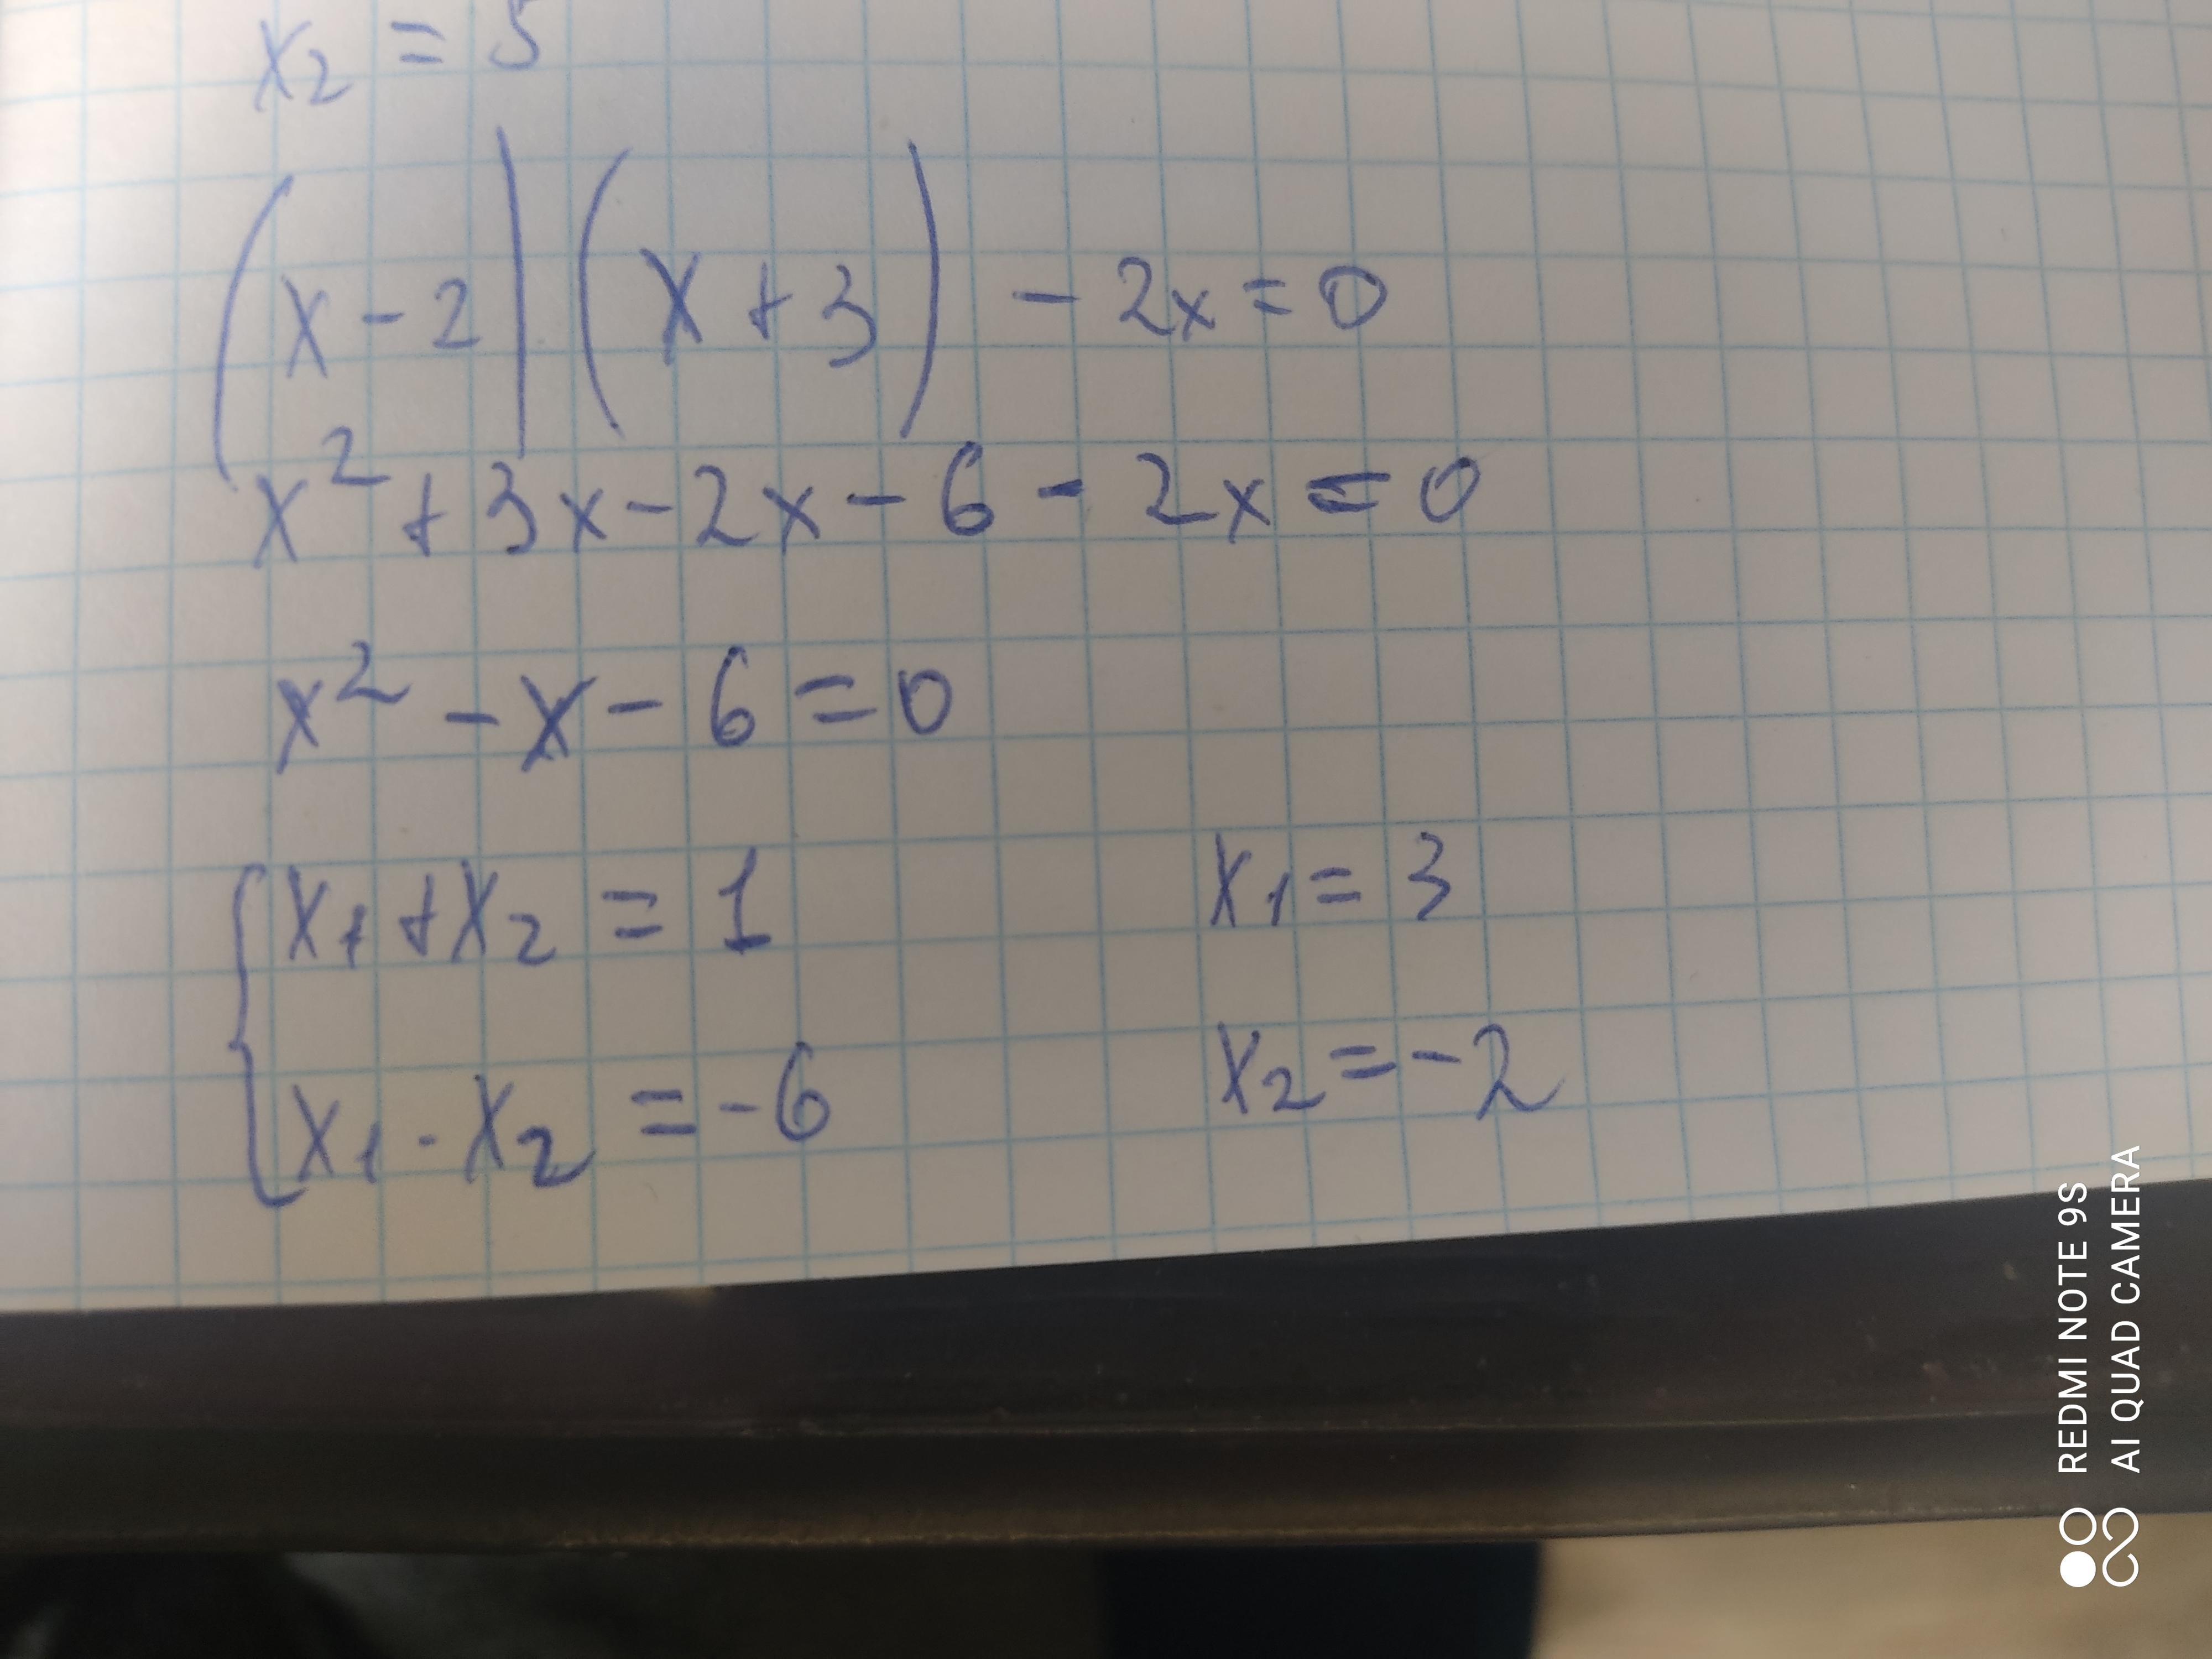 x₂ = 5
(x - 2) (x + 3) - 2x = 0
x² + 3x - 2x - 6 - 2x = 0
x² - x - 6 = 0
{ x₁ + x₂ = 1
x₁ = 3
x₁ · x₂ = -6
x₂ = -2
REDMI NOTE 9S
AI QUAD CAMERA